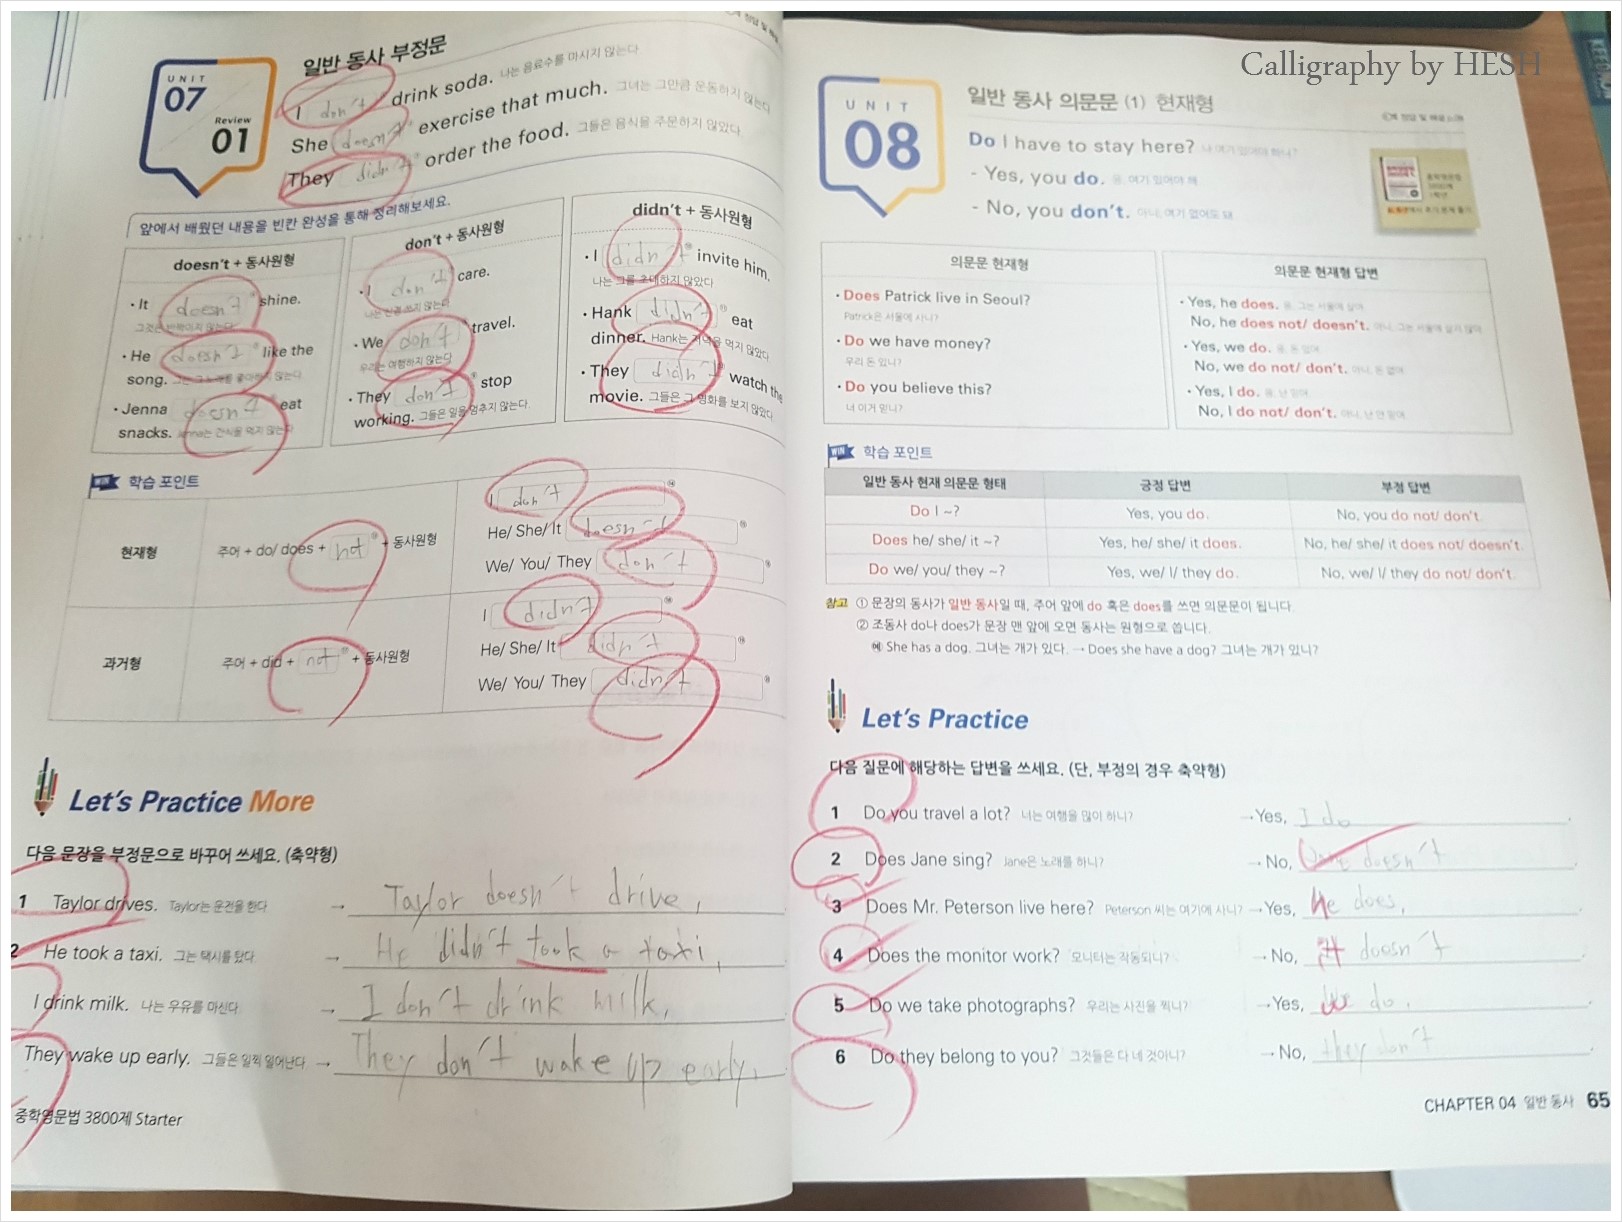 Calligraphy by HESH
UNIT
07
Review
01
일반 동사 부정문
I don't drink soda. 나는 음료수를 마시지 않는다.
She doesn't exercise that much. 그녀는 그만큼 운동하지 않는다.
They didn't order the food. 그들은 음식을 주문하지 않았다.
앞에서 배웠던 내용을 빈칸 완성을 통해 정리해보세요.
doesn't + 동사원형
• It doesn't shine.
그것은 반짝이지 않는다.
• He doesn't like the
song. 그는 그 노래를 좋아하지 않는다.
• Jenna doesn't eat
snacks. Jenna는 간식을 먹지 않는다.
don't + 동사원형
• I don't care.
나는 신경 쓰지 않는다.
• We don't travel.
우리는 여행하지 않는다.
• They don't stop
working. 그들은 일을 멈추지 않는다.
didn't + 동사원형
• I didn't invite him.
나는 그를 초대하지 않았다.
• Hank didn't eat
dinner. Hank는 저녁을 먹지 않았다.
• They didn't watch the
movie. 그들은 그 영화를 보지 않았다.
WIN 학습 포인트
현재형
주어 + do/ does + not + 동사원형
I don't
He/ She/ It doesn't
We/ You/ They don't
과거형
주어 + did + not + 동사원형
I didn't
He/ She/ It didn't
We/ You/ They didn't
Let's Practice More
다음 문장을 부정문으로 바꾸어 쓰세요. (축약형)
1 Taylor drives. Taylor는 운전을 한다. → Taylor doesn't drive.
2 He took a taxi. 그는 택시를 탔다. → He didn't took a taxi.
I drink milk. 나는 우유를 마신다. → I don't drink milk.
They wake up early. 그들은 일찍 일어난다. → They don't wake up early.
중학영문법 3800제 Starter
UNIT
08
일반 동사 의문문 (1) 현재형
Do I have to stay here? 나 여기 있어야 하니?
- Yes, you do. 응, 여기 있어야 해.
- No, you don't. 아니, 여기 없어도 돼.
의문문 현재형
• Does Patrick live in Seoul?
Patrick은 서울에 사니?
• Do we have money?
우리 돈 있니?
• Do you believe this?
너 이거 믿니?
의문문 현재형 답변
• Yes, he does. 응, 그는 서울에 살아.
No, he does not/ doesn't. 아니, 그는 서울에 살지 않아.
• Yes, we do. 응, 돈 있어.
No, we do not/ don't. 아니, 돈 없어.
• Yes, I do. 응, 난 믿어.
No, I do not/ don't. 아니, 난 안 믿어.
WIN 학습 포인트
일반 동사 현재 의문문 형태 긍정 답변 부정 답변
Do I ~? Yes, you do. No, you do not/ don't.
Does he/ she/ it ~? Yes, he/ she/ it does. No, he/ she/ it does not/ doesn't.
Do we/ you/ they ~? Yes, we/ I/ they do. No, we/ I/ they do not/ don't.
참고 ① 문장의 동사가 일반 동사일 때, 주어 앞에 do 혹은 does를 쓰면 의문문이 됩니다.
② 조동사 do나 does가 문장 맨 앞에 오면 동사는 원형으로 씁니다.
예 She has a dog. 그녀는 개가 있다. → Does she have a dog? 그녀는 개가 있니?
Let's Practice
다음 질문에 해당하는 답변을 쓰세요. (단, 부정의 경우 축약형)
1 Do you travel a lot? 너는 여행을 많이 하니? → Yes, I do.
2 Does Jane sing? Jane은 노래를 하니? → No, doesn't
3 Does Mr. Peterson live here? Peterson 씨는 여기에 사니? → Yes, He does.
4 Does the monitor work? 모니터는 작동되니? → No, it doesn't
5 Do we take photographs? 우리는 사진을 찍니? → Yes, we do.
6 Do they belong to you? 그것들은 다 네 것이니? → No, they don't
CHAPTER 04 일반 동사 65